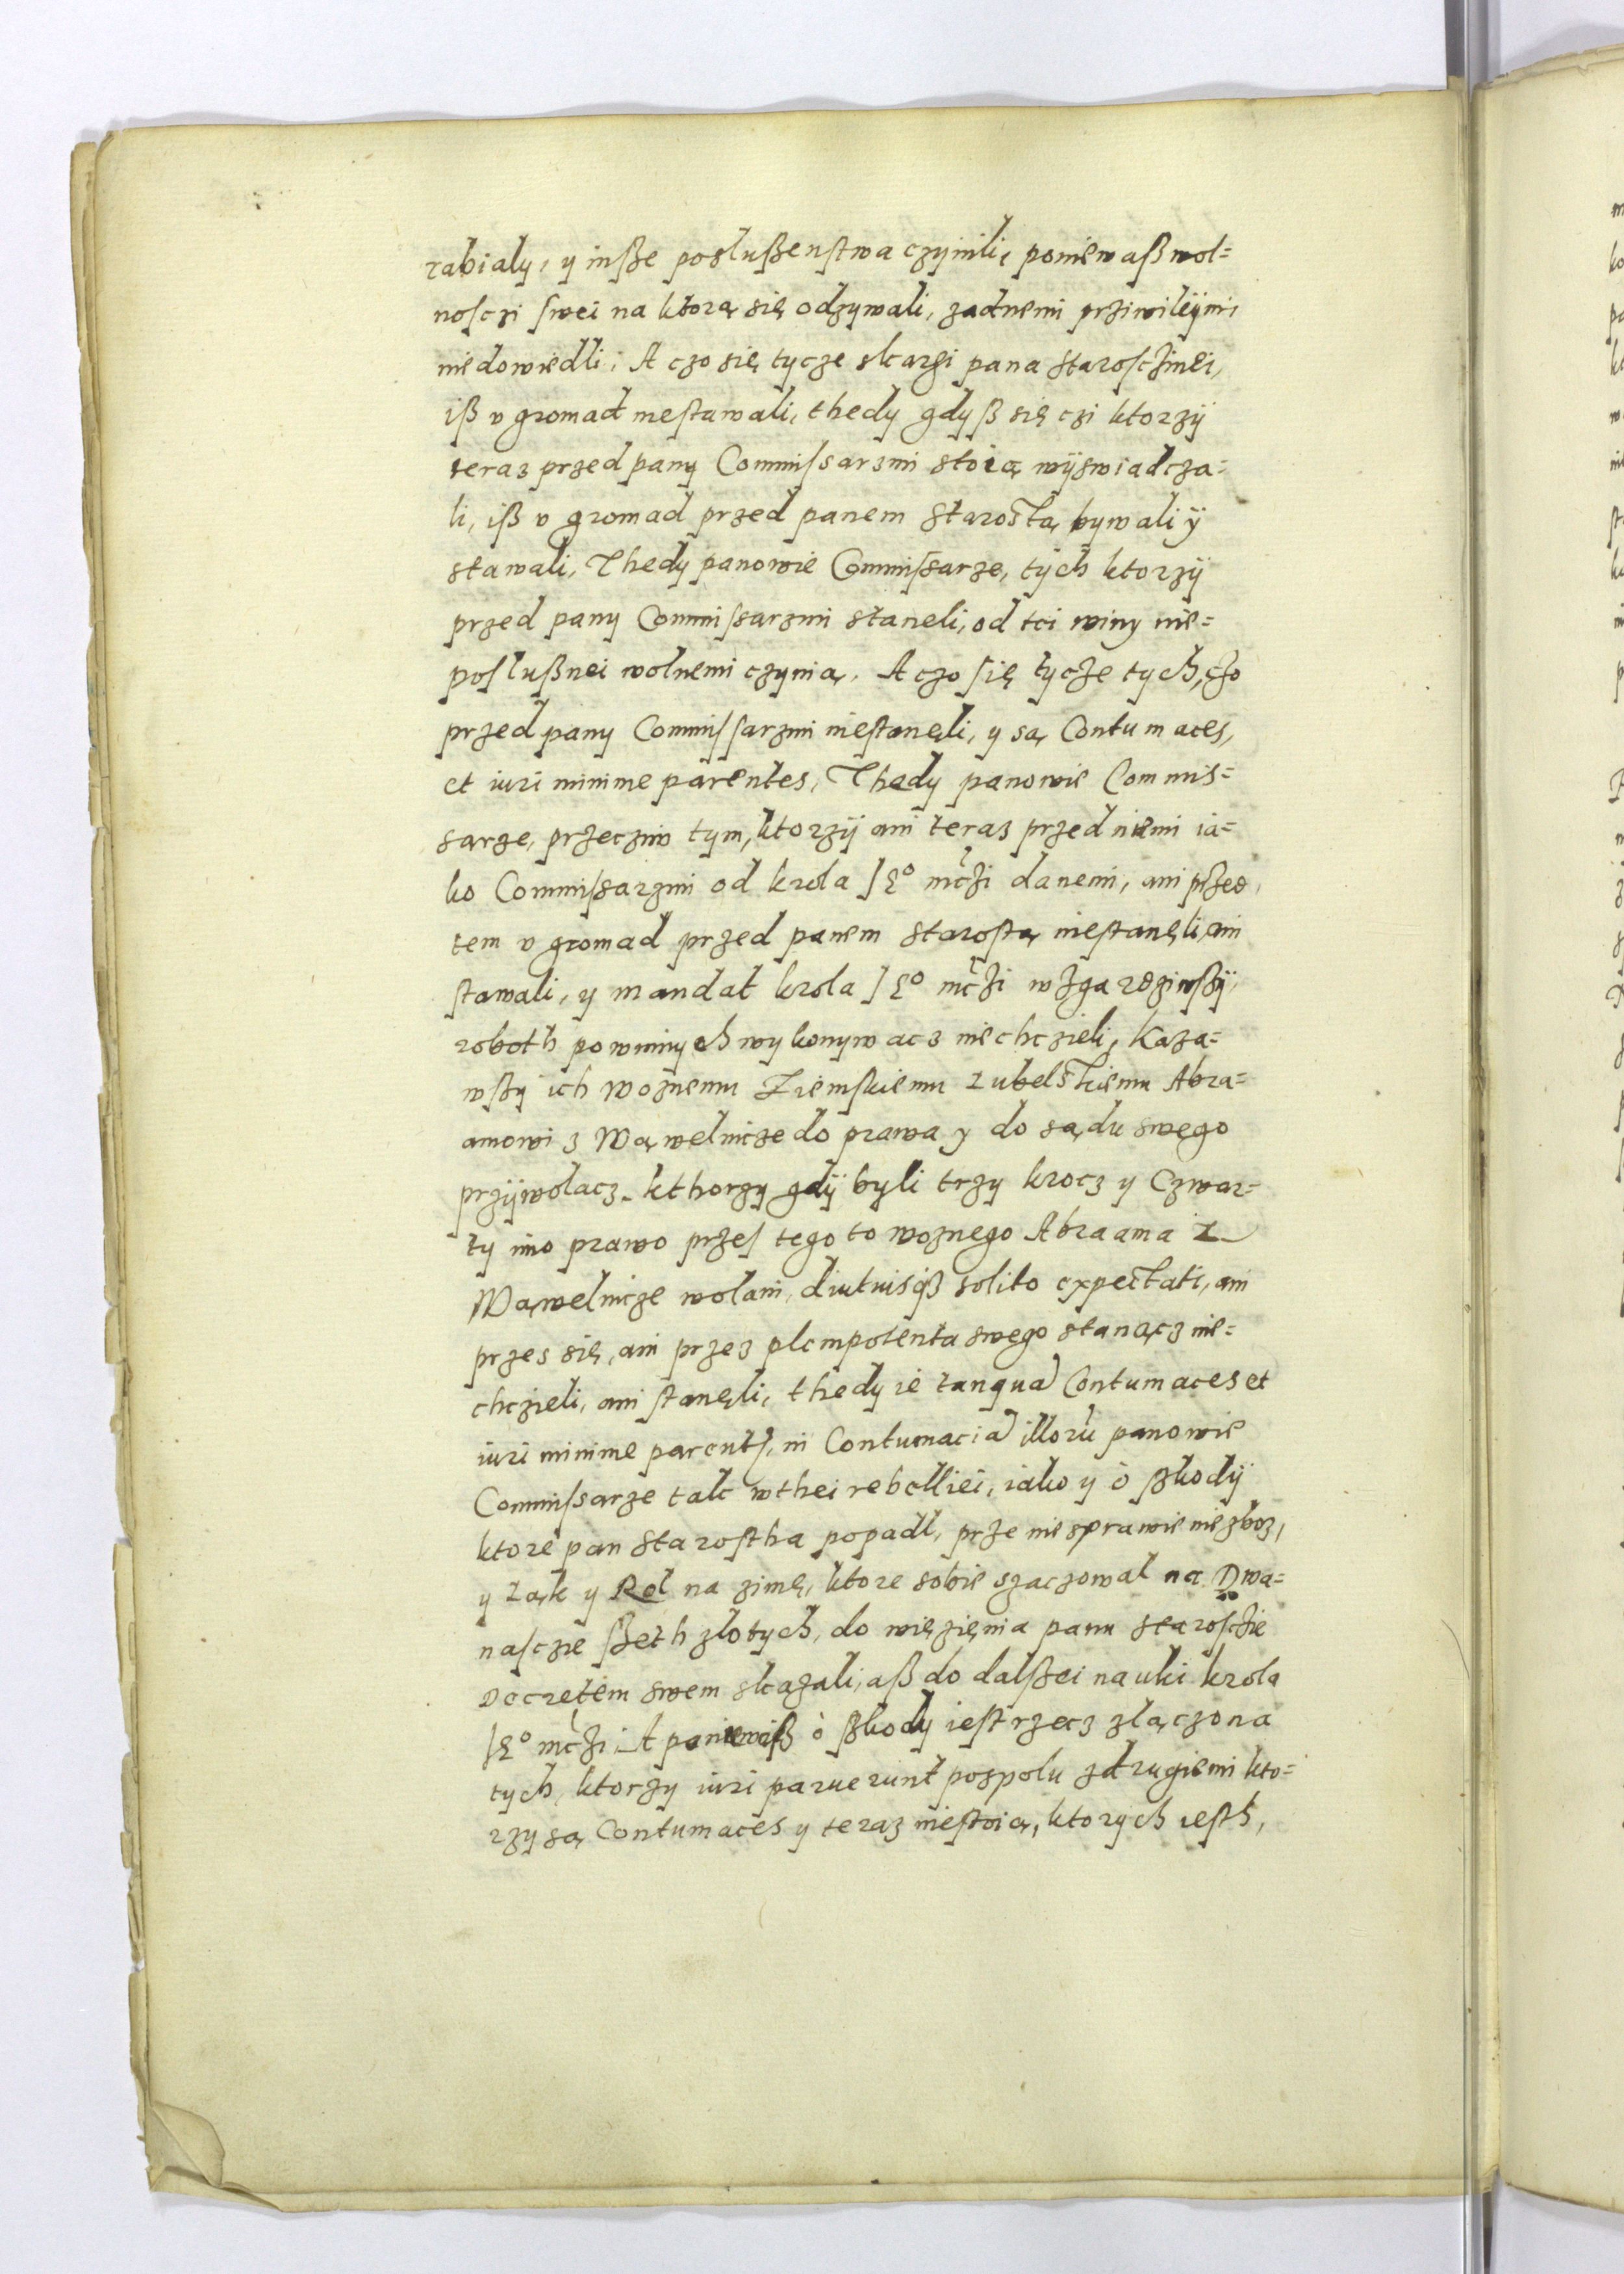 rabialy, y inße poslußenstwa czynili, poniewaß wol=
nosczi swei na ktorą się odzywali, zadnemi prziwileijmi
niedowiedli. A czo się tycze skargi pana starosczinei,
iß v gromad niestawali, thedy gdyß się czi ktorzÿ
teraz przed pany Commissarzmi stoią wÿswiadcza=
li, iß v gromad przed panem starostą bywali ÿ
stawali, Thedy panowie Commissarze, tÿch ktorzÿ
przed pany Commissarzmi staneli, od tei winy nie=
poslußnei wolnemi czynią. A czo się tycze tych, czo
przed pany Commissarzmi niestanęli, y są Contumaces,
et iuri minime parentes, Thedy panowie Commis=
sarze, przecziw tym, ktorzÿ ani teraz przed niemi ia=
ko Commissarzmi od krola JEº mczi danemi, ani przed
tem v gromad przed panem starostą niestanęli, ani
stawali, y mandat krola JEº mczi wzgardziwßÿ,
roboth powinnych wykonywacz niechczieli, Kaza=
wßy ich woznemu Ziemskiemu Lubelskiemu Abra=
amowi z Wąwelnicze do prawa y do sądu swego
przÿwolacz. kthorzy gdÿ byli trzy krocz y Czwar=
ty ino prawo przes tego to woznego Abraama z
Wąwelnicze wolani, diutiusq3 solito expectati, ani
przes się, ani przez plempotenta swego stanącz nie=
chczieli, ani stanęli, thedy ie tanqua Contumaces et
iuri minime parent, in Contumacia illoru panowie
Commissarze tak wthei rebelliei, iako y ò ßkodÿ
ktore pan Starostha popadl, prze niesprawienie zboz,
y Ląk y Rol na zimę, ktore sobie szaczowal na Dwa=
nasczie ßeth zlotych, do więzięnia panu starosczie
Decretem swem skazali, aß do dalßei nauki krola
JEº mczi. A poniewaß ò ßkody iest rzecz zlączona
tych, ktorzy iuri paruerunt pospolu zdrugiemi kto=
rzy są Contumaces y teraz niestoią, ktorych iesth,